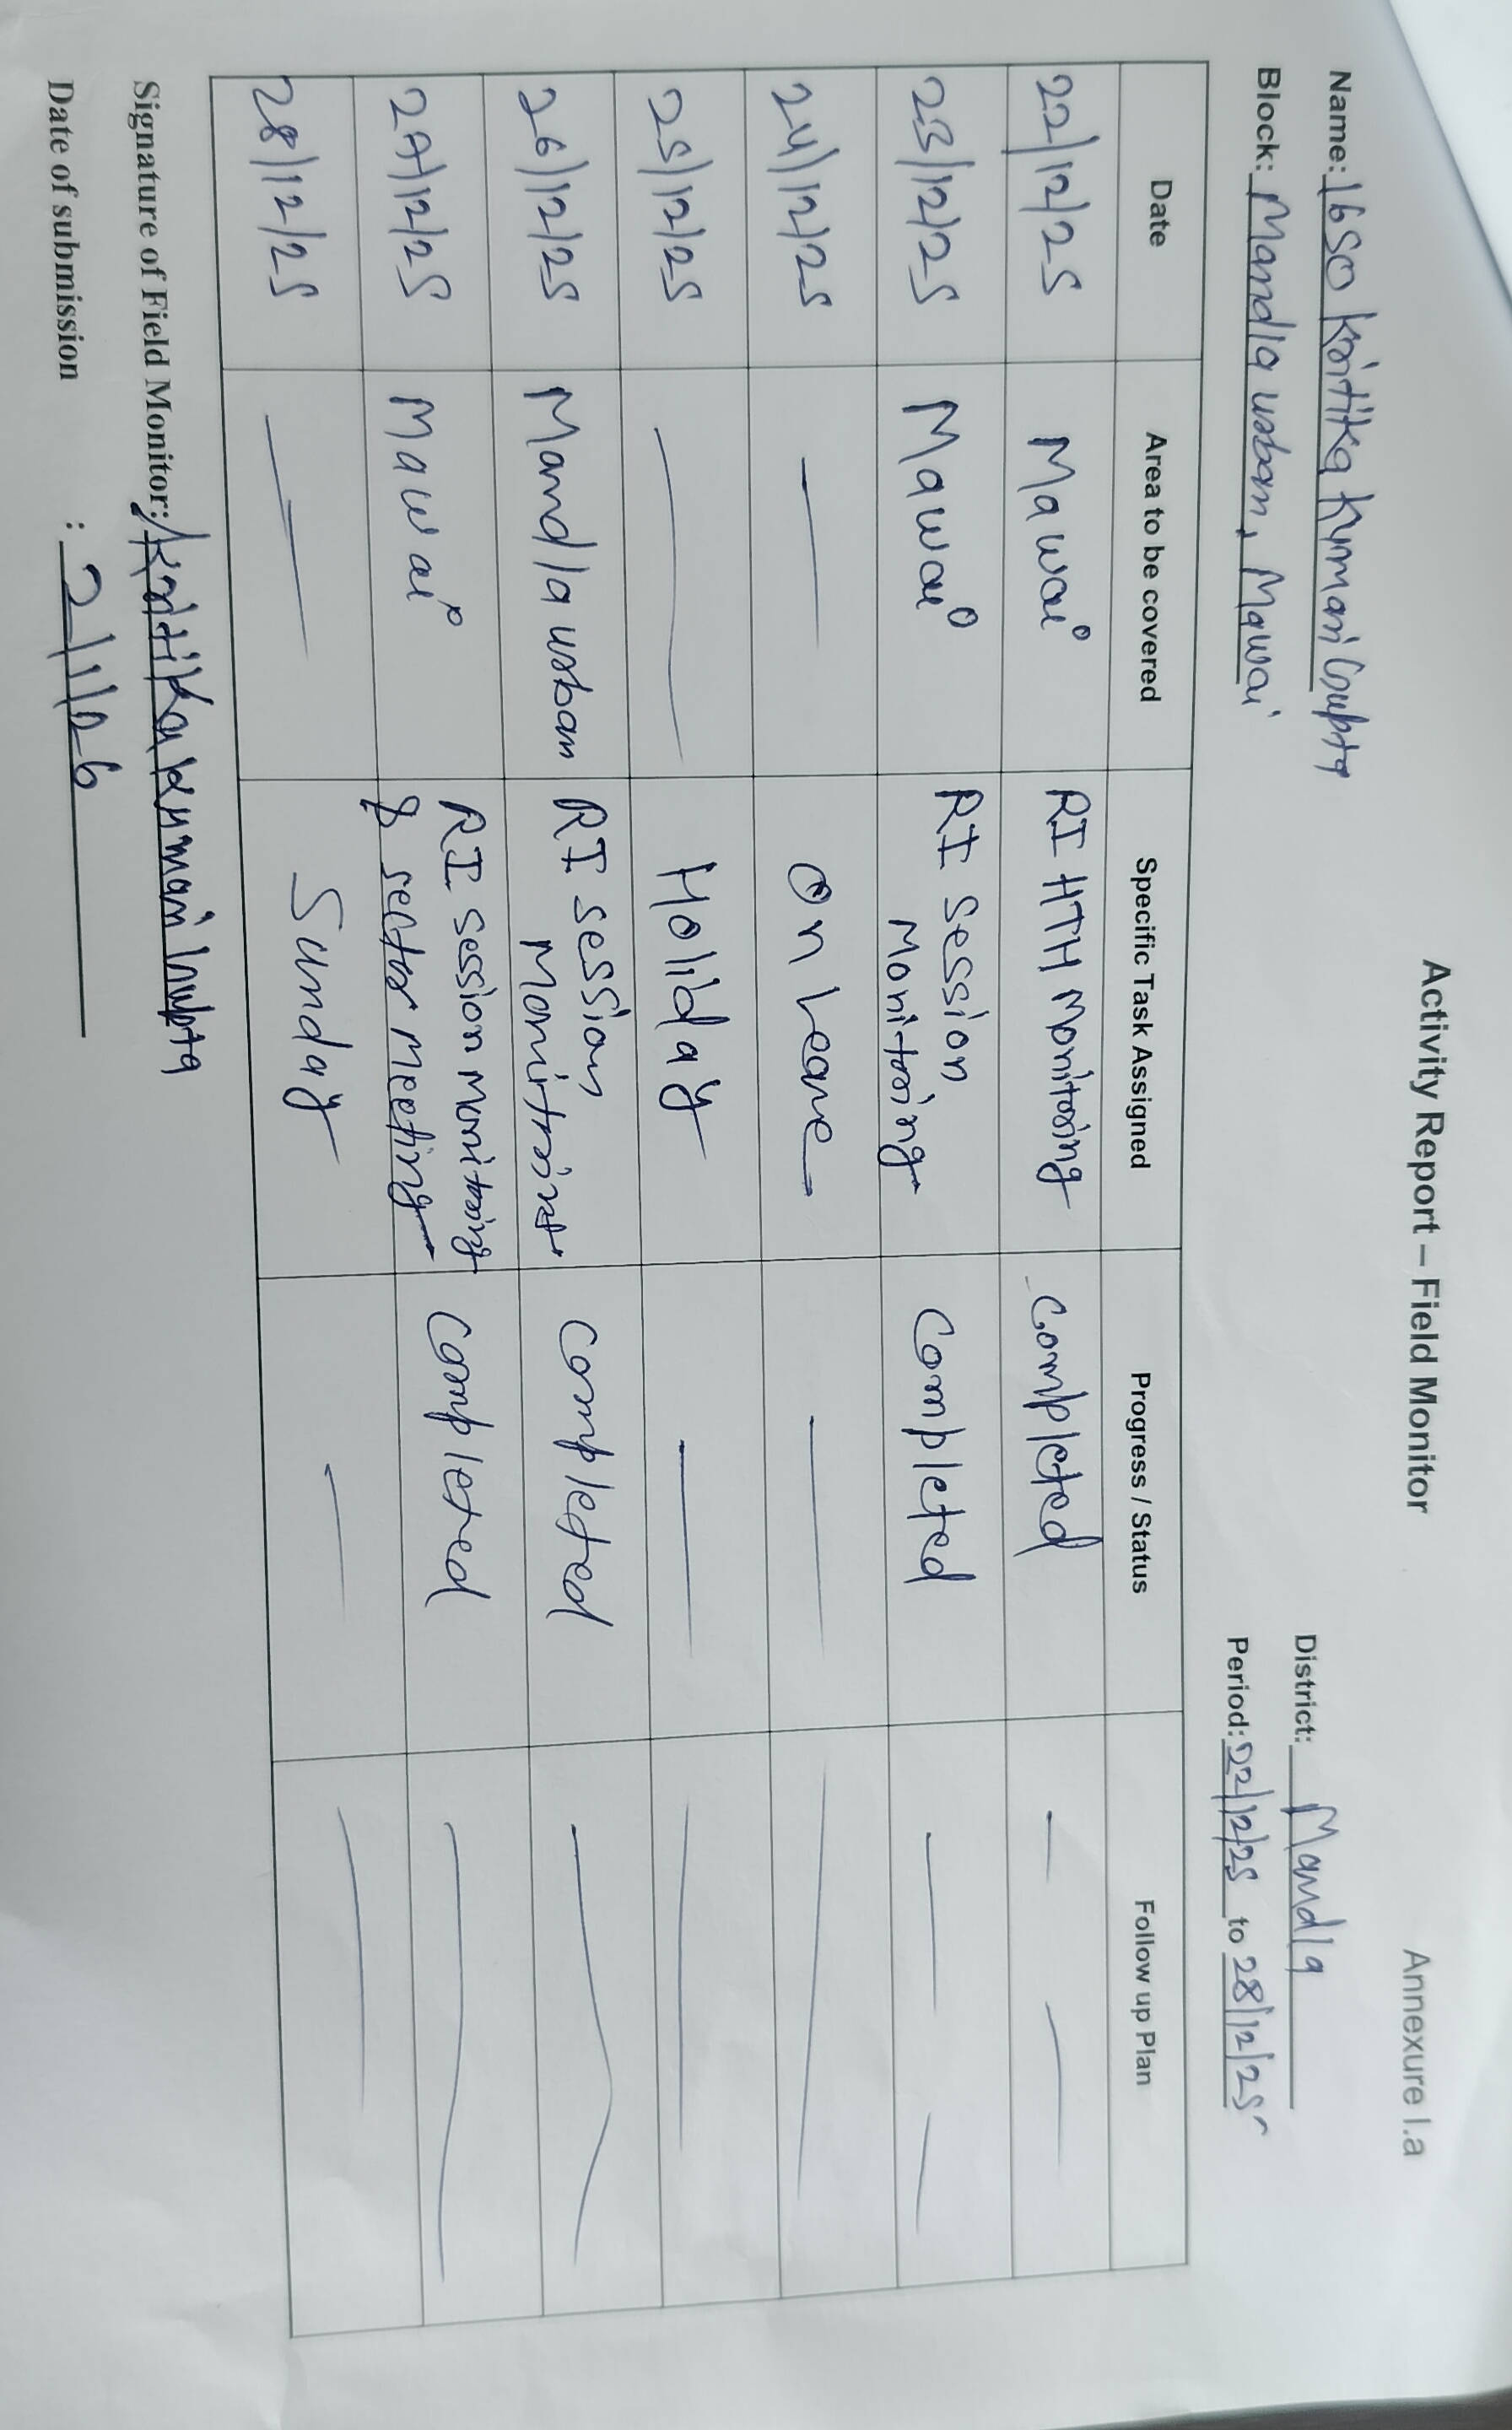 Annexure I.a
Activity Report – Field Monitor
Name: 1650 Kritika Kumari Gupta
District: Mandla
Block: Mandla urban, Mawai
Period: 22/12/25 to 28/12/25
Date Area to be covered Specific Task Assigned Progress / Status Follow up Plan
22/12/25 Mawai RI HTH Monitoring Completed — —
23/12/25 Mawai RI Session Completed — —
Monitoring
24/12/25 — On Leave — —
25/12/25 — Holiday — —
26/12/25 Mandla urban RI Session Completed —
Monitoring
27/12/25 Mawai RI Session Monitoring Completed —
& sector Meeting
28/12/25 — Sunday — —
Signature of Field Monitor: Kritika Kumari Gupta
Date of submission : 2/1/26